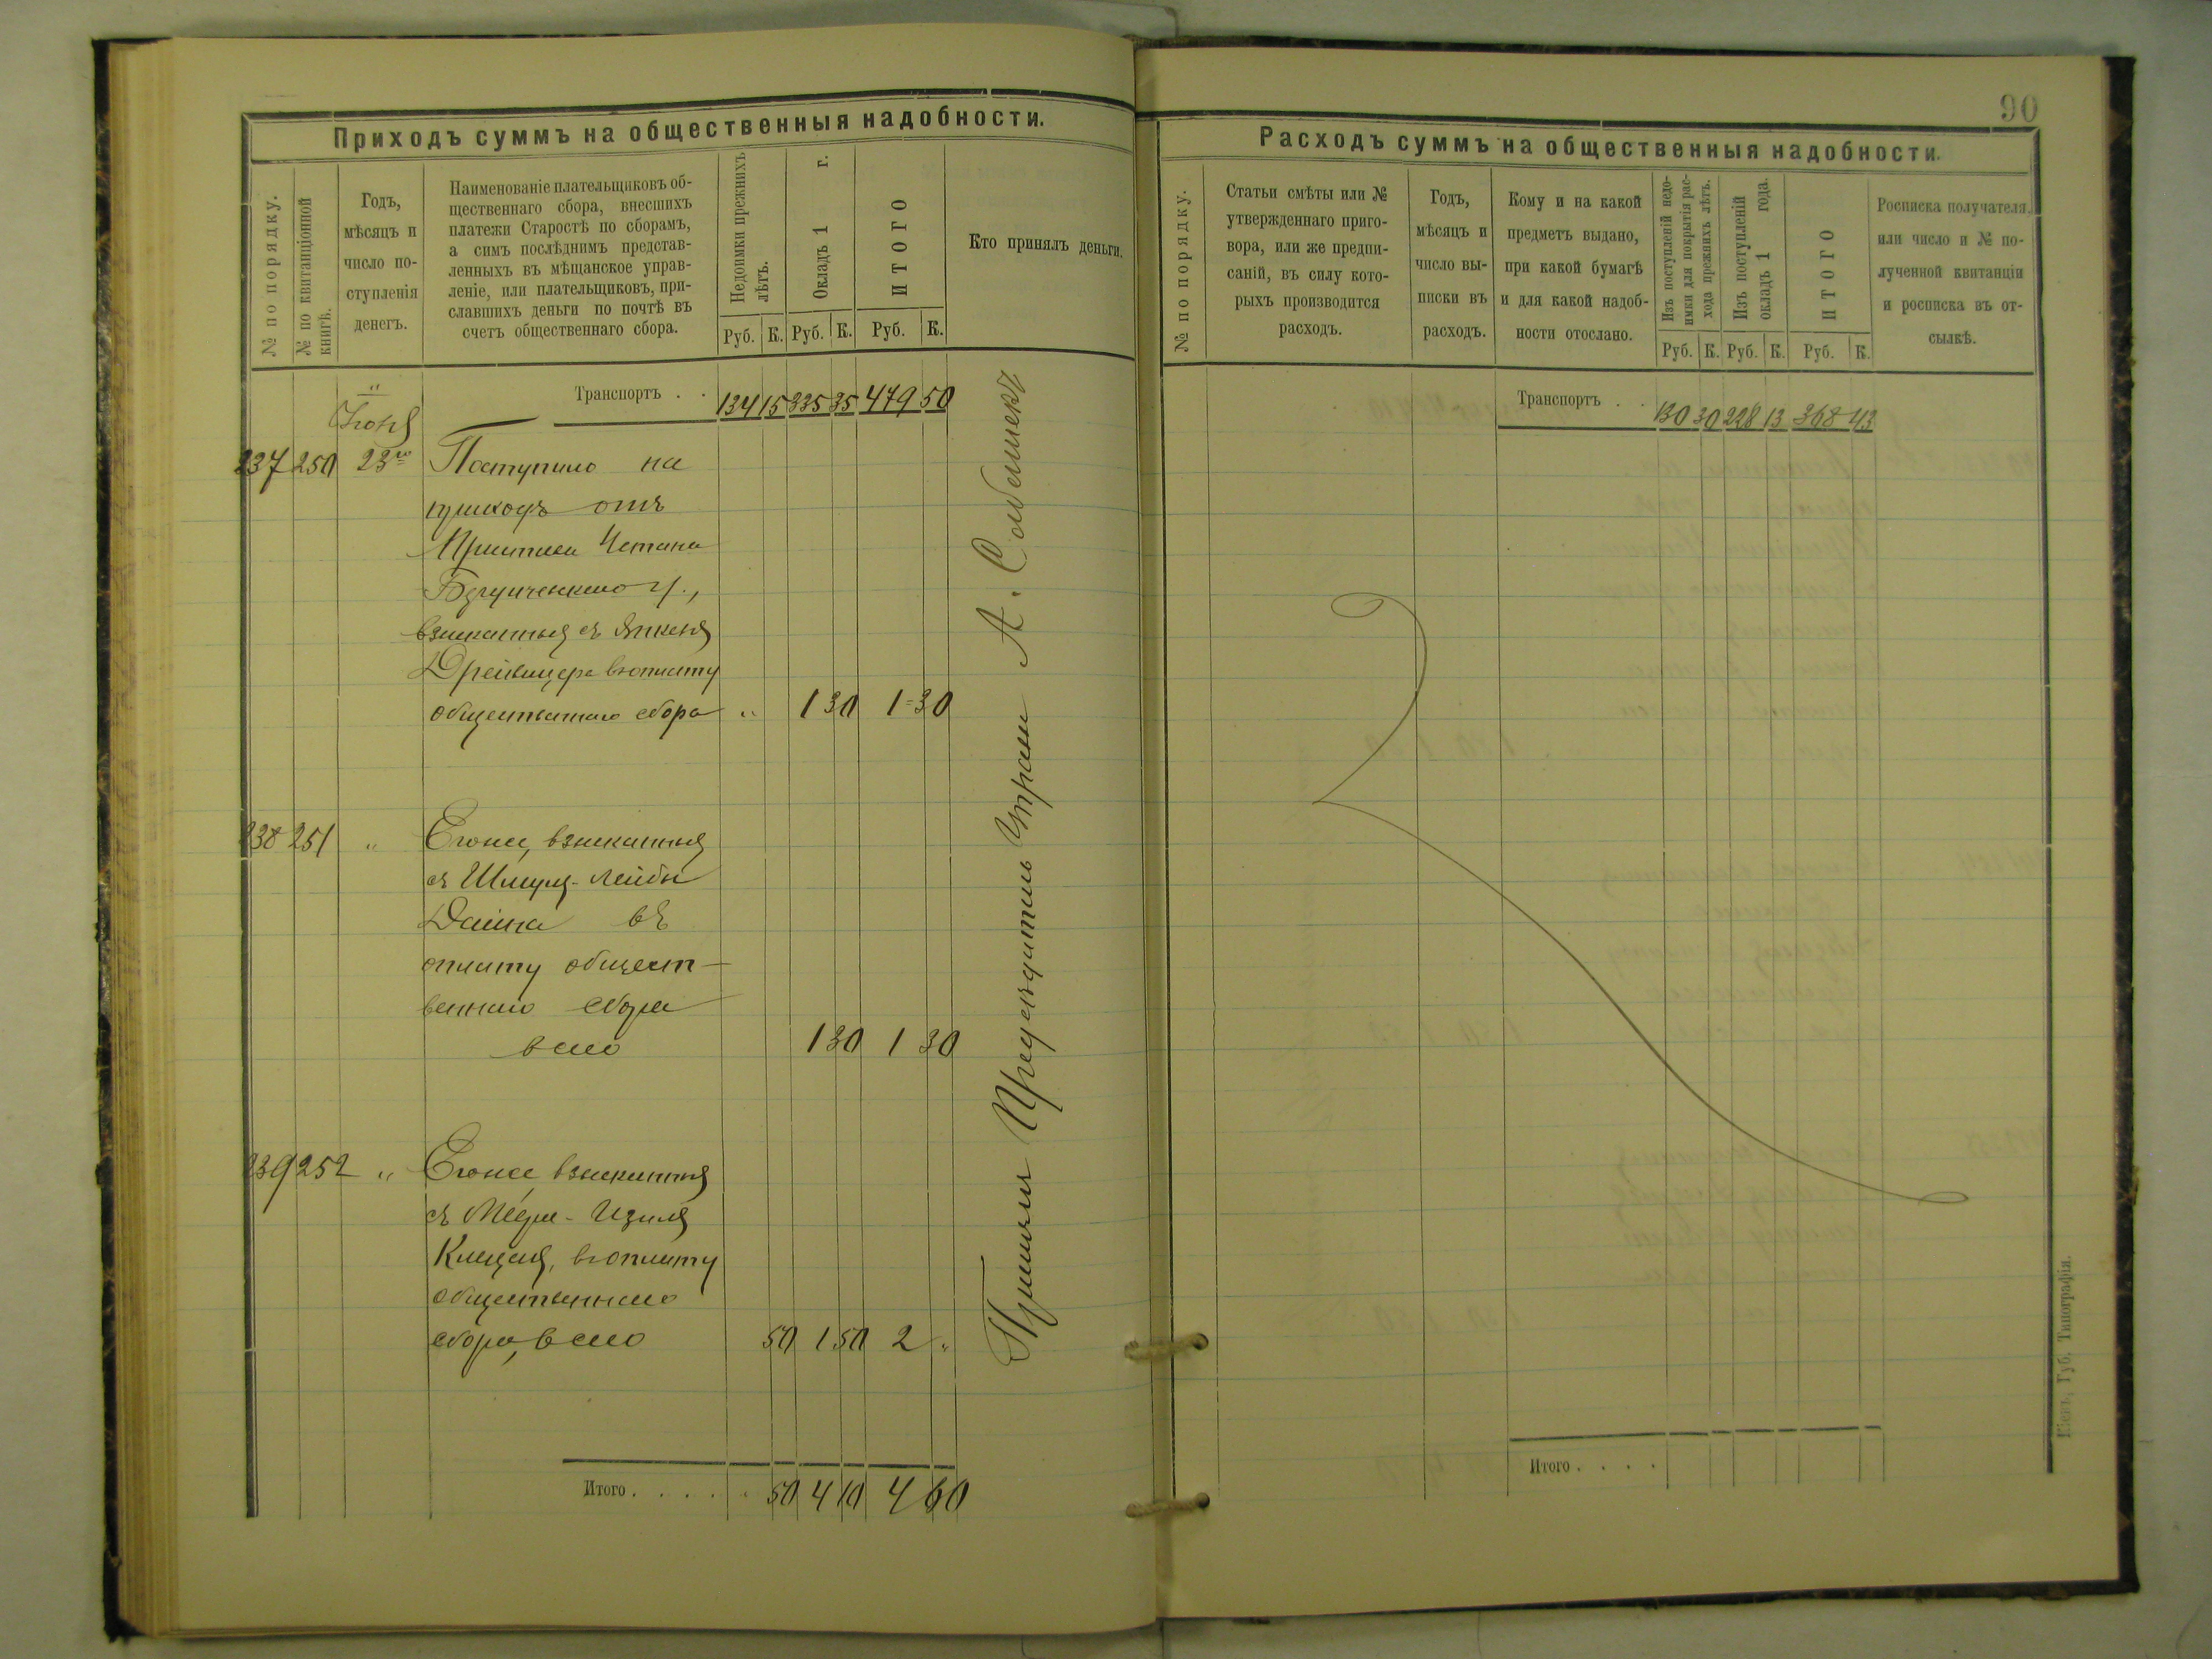 Приходъ суммъ на общественныя надобности.
№ по порядку.
№ по квитанціонной
книгѣ.
Годъ,
мѣсяцъ и
число по-
ступленія
денегъ.
Наименованіе плательщиковъ об-
щественнаго сбора, внесшихъ
платежи Старостѣ по сборамъ,
а симъ послѣднимъ представ-
ленныхъ въ мѣщанское управ-
леніе, или плательщиковъ, при-
славшихъ деньги по почтѣ въ
счетъ общественнаго сбора.
Недоимки прежнихъ
лѣтъ.
Окладъ 1 г.
ИТОГО
Руб. К. Руб. К. Руб. К.
Кто принялъ деньги.
Транспортъ . . 134 15 335 35 479 50
Іюня
237 250 23го Поступило на
приходъ отъ
Пристава Устана
взысканныя съ
въ уплату
общественнаго сбора " 1 30 1=30
238 251 " Его же, взысканныя
съ Шмуля-Лейбы
Дайна въ
уплату общест-
веннаго сбора
всего 1 30 1 30
239 252 " Его же взысканныя
съ
въ уплату
общественнаго
сбора, всего 50 1 50 2 "
Итого . . . . . 50 4 10 4 60
Принялъ Предсѣдатель Управы А.
90
Расходъ суммъ на общественныя надобности.
№ по порядку.
Статьи смѣты или №
утвержденнаго приго-
вора, или же предпи-
саній, въ силу кото-
рыхъ производится
расходъ.
Годъ,
мѣсяцъ и
число вы-
писки въ
расходъ.
Кому и на какой
предметъ выдано,
при какой бумагѣ
и для какой надоб-
ности отослано.
Изъ поступленій недо-
имки для покрытія рас-
хода прежнихъ лѣтъ.
Изъ поступленій
окладъ 1 года.
ИТОГО
Руб. К. Руб. К. Руб. К.
Росписка получателя,
или число и № по-
лученной квитанціи
и росписка въ от-
сылкѣ.
Транспортъ . . 130 30 228 13 368 43
Итого . . . .
Кіевъ, Губ. Типографія.